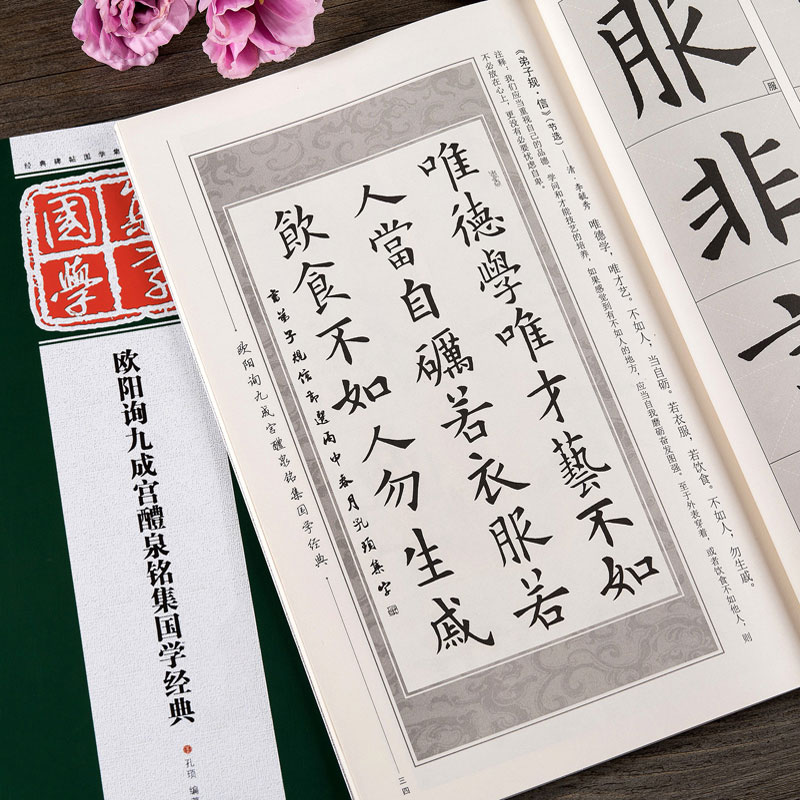 经典碑帖国学集
國學
欧阳询九成宫醴泉铭集国学经典
孔 编
服
服
非
《弟子规·信》（节选） ——清·李毓秀 唯德学，唯才艺。不如人，当自砺。若衣服，若饮食。不如人，勿生戚。
注释：我们应当重视自己的品德、学问和才能技艺的培养，如果感觉到有不如人的地方，应当自我磨砺奋发图强。至于外表穿着，或者饮食不如他人，则
不必放在心上，更没有必要忧虑自卑。
唯德學唯才藝不如
人當自礪若衣服若
飲食不如人勿生戚
書弟子規信節選丙申春月孔 集字
欧阳询九成宫醴泉铭集国学经典
三四